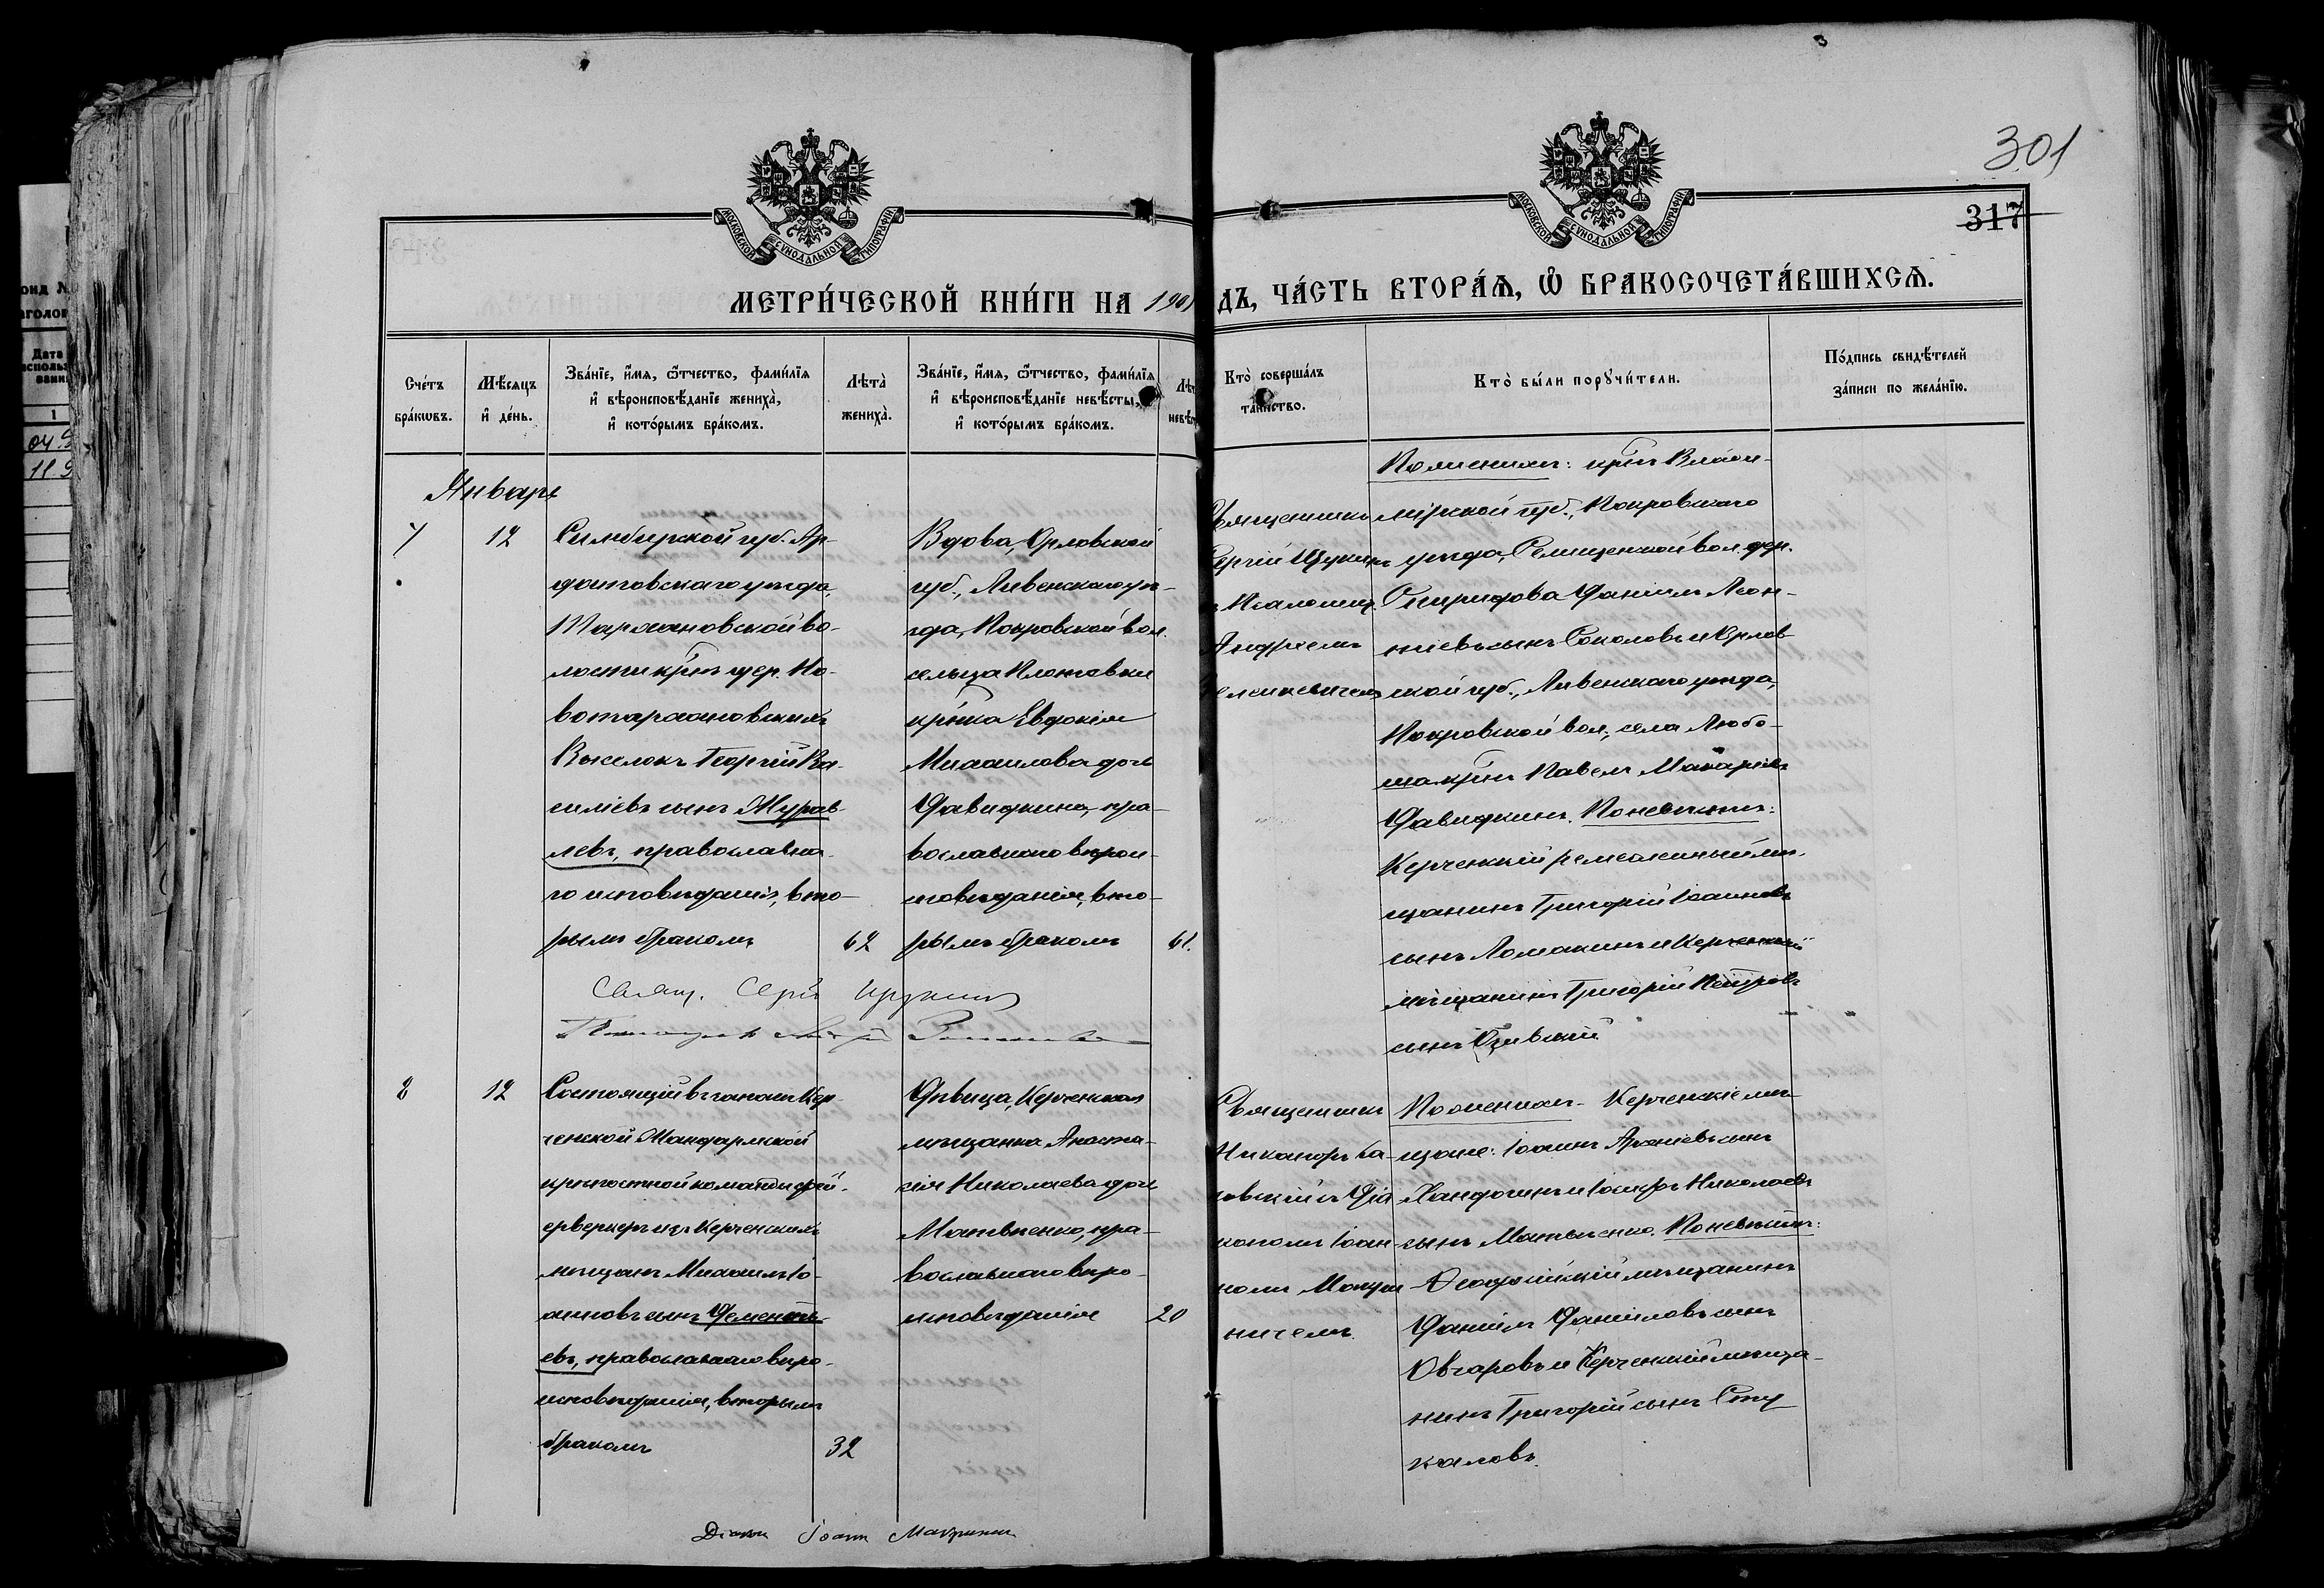 301
317
МОСКОВСКОЙ СѴНОДАЛЬНОЙ ТИПОГРАФІИ
МОСКОВСКОЙ СѴНОДАЛЬНОЙ ТИПОГРАФІИ
МЕТРИ́ЧЕСКОЙ КНИ́ГИ НА 1901
ДЪ, ЧА́СТЬ ВТОРА́Ѧ, Ѡ҆ БРАКОСОЧЕТА́ВШИХСѦ.
Сче́тъ бра́кѡвъ.
Мѣ́сѧцъ и҆ де́нь.
Зва́нїе, и҆́мѧ, ѻ҆́тчество, фами́лїѧ
и҆ вѣроисповѣ́данїе жениха̀,
и҆ кото́рымъ бра́комъ.
Лѣта̀ жениха̀.
Зва́нїе, и҆́мѧ, ѻ҆́тчество, фами́лїѧ
и҆ вѣроисповѣ́данїе невѣ́сты,
и҆ кото́рымъ бра́комъ.
Кто̀ соверша́лъ
та́инство.
Кто̀ бы́ли порꙋчи́тели.
По́дпись свидѣ́телей
за́писи по жела́нїю.
Январь
7
12
Симбирской губ. Ар-
датовскаго уѣзда,
Тархановской во-
лости кр̃нъ дер. Но-
вотархановскихъ
Выселокъ Георгій Ва-
силіевъ сынъ Журав-
левъ, православна-
го исповѣданія, вто-
рымъ бракомъ
62
Вдова, Орловской
губ., Ливенскаго уѣ-
зда, Покровской вол.
сельца Плотовки
кр̃нка Евдокія
Михаилова дочь
Давидкина, пра-
вославнаго вѣрои-
сповѣданія, вто-
рымъ бракомъ
61.
Священникъ
Сергій Щукинъ
съ псаломщ.
Андреемъ
Поженихѣ: кр̃нъ Влади-
мірской губ., Покровскаго
уѣзда, Селищенской вол. дер.
Спиридова Даніилъ Леон-
тіевъ сынъ Соколовъ и Орлов-
ской губ., Ливенскаго уѣзда,
Покровской вол., села Любо-
ша кр̃нъ Павелъ Макаріевъ
Давидкинъ. Поневѣстѣ:
Керченскій ремесленный мѣ-
щанинъ Григорій Іоанновъ
сынъ Ломакинъ и Керченскій
мѣщанинъ Григорій Петровъ
сынъ
Свящ. Сергій Щукинъ
8
12
Состоящій въ запасѣ Кер-
ченской Жандармской
крѣпостной команды фей-
ерверкеръ изъ Керченскихъ
мѣщанъ Михаилъ Іо-
анновъ сынъ Дементь-
евъ, православнаго вѣро-
исповѣданія, вторымъ
бракомъ
32
Дѣвица, Керченская
мѣщанка Анаста-
сія Николаева дочь
Матвѣенко, пра-
вославнаго вѣро-
исповѣданія
20
Священникъ
Никаноръ
съ Діа-
кономъ Іоан-
номъ
Поженихѣ- Керченскіе мѣ-
щане: Іоаннъ Арсеніевъ сынъ
Хандогинъ и Іосифъ Николаевъ
сынъ Матвѣенко. Поневѣстѣ:
Ѳеодосійскій мѣщанинъ
Даніилъ Даніиловъ сынъ
Овчаровъ и Керченскій мѣща-
нинъ Григорій сынъ Сту-
каловъ.
Діаконъ Іоаннъ